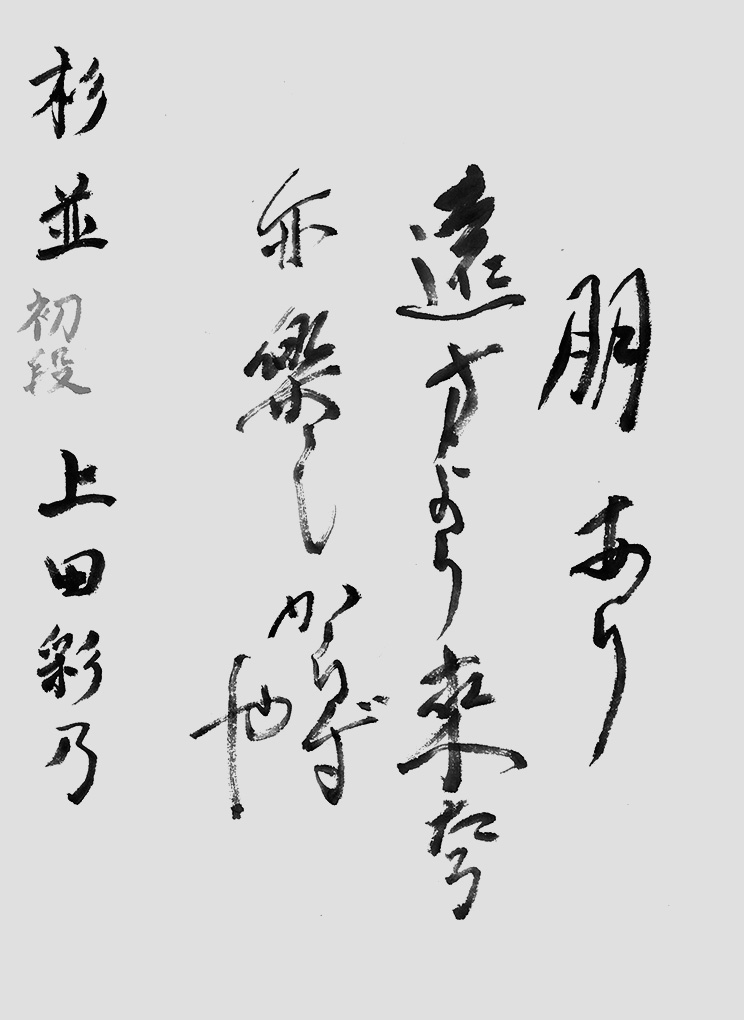 朋あり
遠方より來たる
亦樂しからずや
杉並 初段 上田彩乃